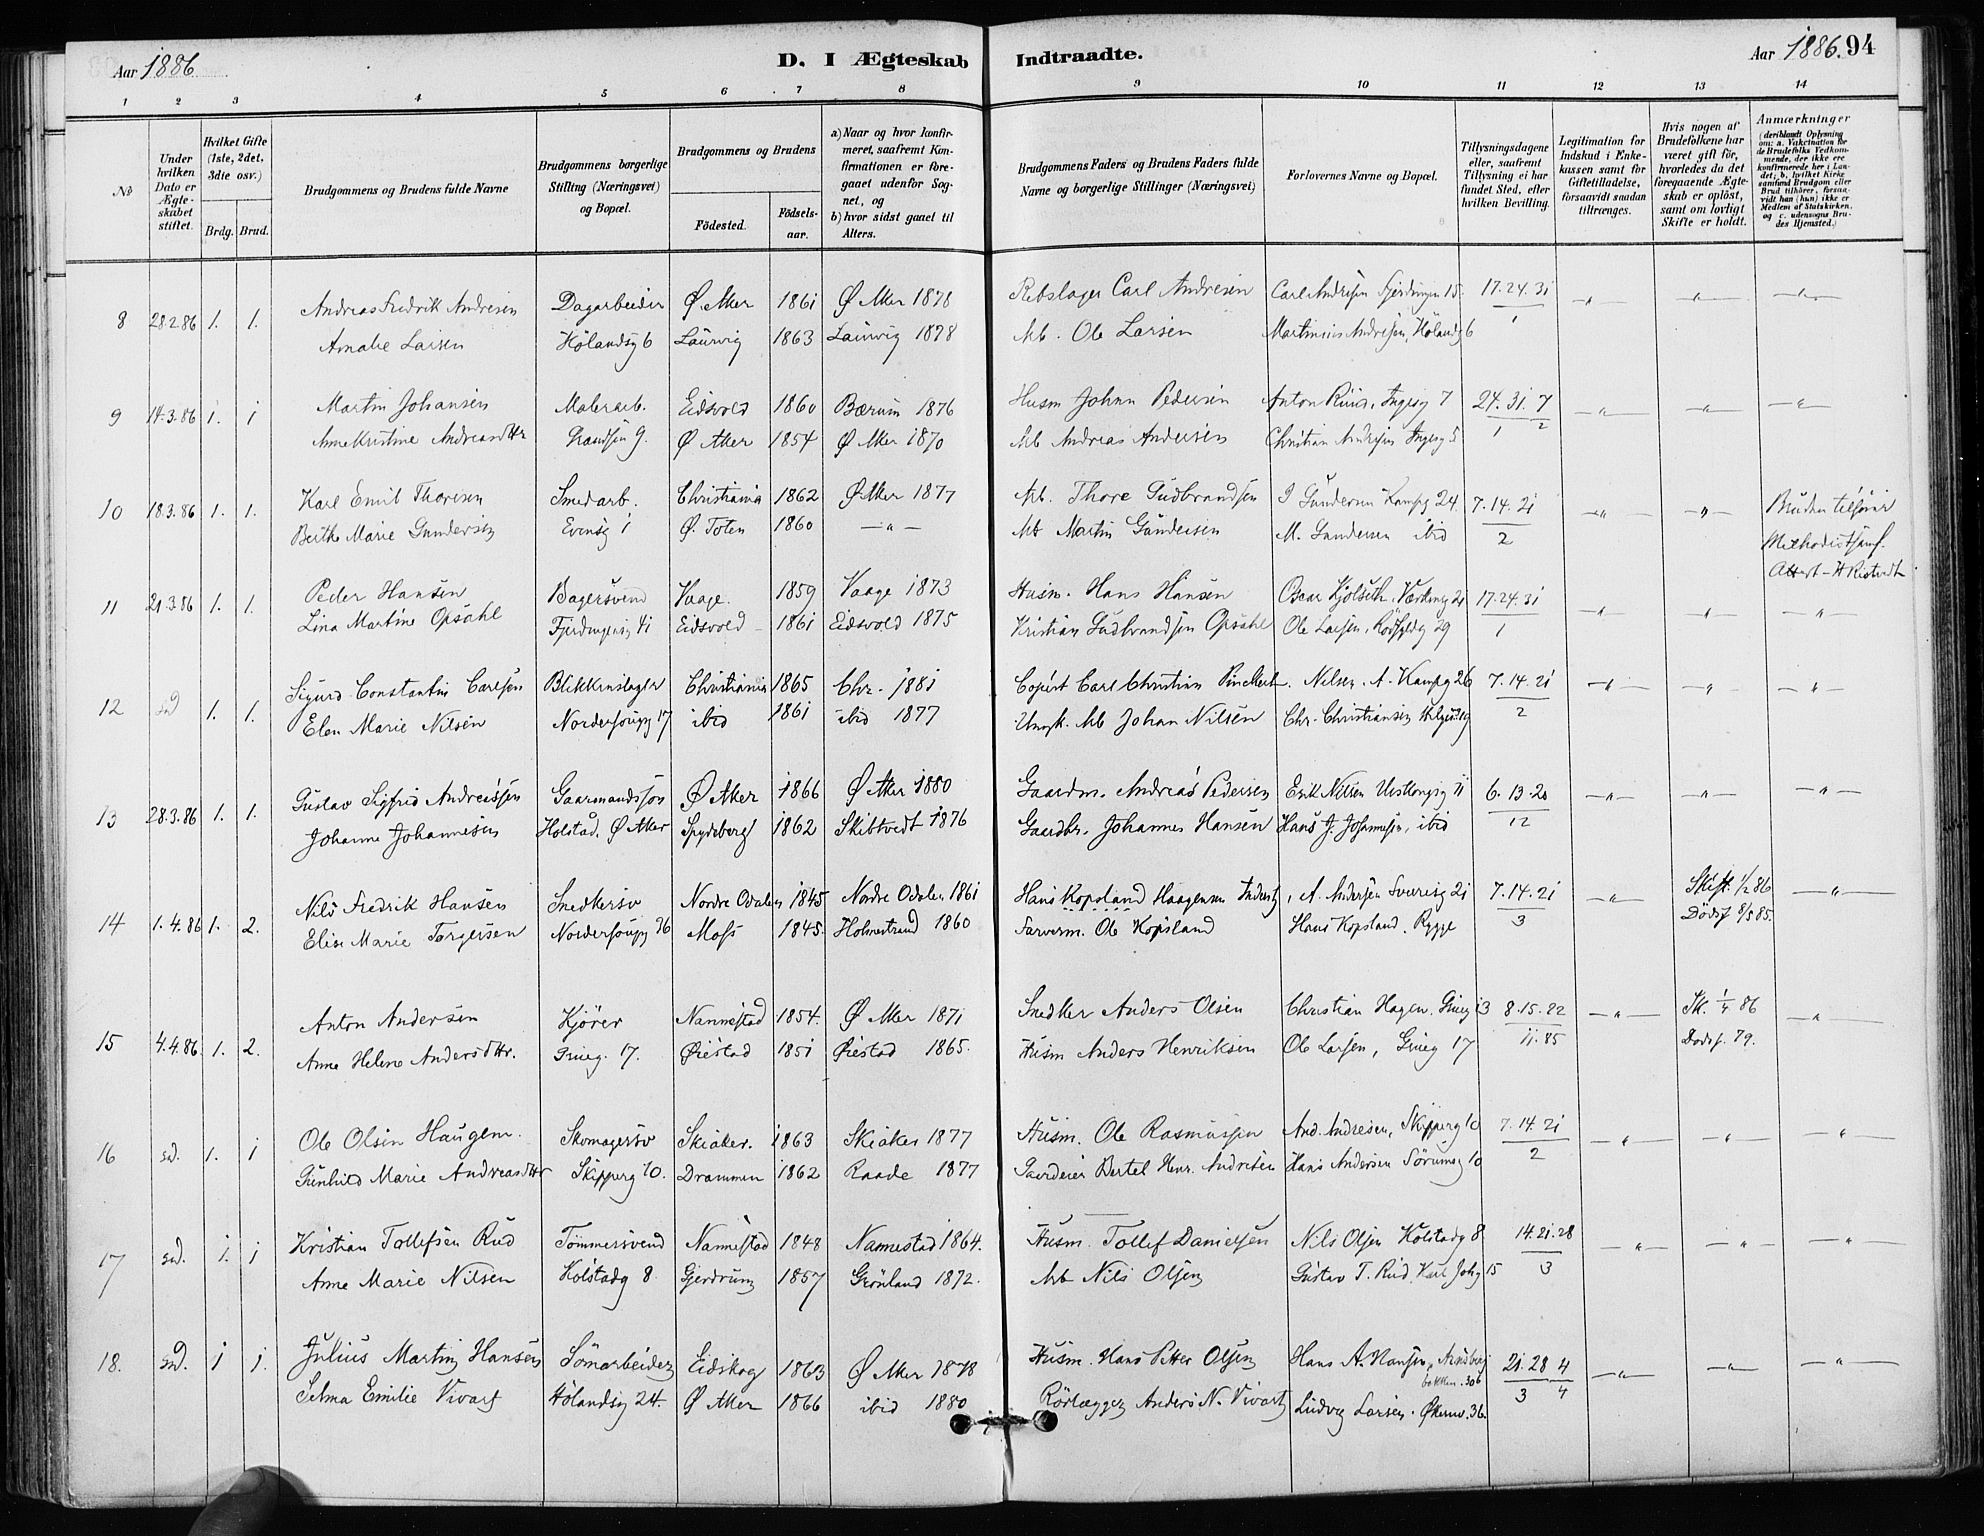 Aar 1886.
D. I Ægteskab Indtraadte.
Aar 1886. 94
1 2 3 4 5 6 7 8 9 10 11 12 13 14
No
Under hvilken Dato er Ægteskabet stiftet.
Hvilket Gifte (1ste, 2det, 3die osv.)
Brdg. Brud.
Brudgommens og Brudens fulde Navne
Brudgommens borgerlige Stilling (Næringsvei) og Bopæl.
Brudgommens og Brudens
Födested. Födsels-aar.
a) Naar og hvor konfirmeret, saafremt Konfirmationen er foregaaet udenfor Sognet, og
b) hvor sidst gaaet til Alters.
Brudgommens Faders og Brudens Faders fulde Navne og borgerlige Stillinger (Næringsvei)
Forlovernes Navne og Bopæl.
Tillysningsdagene eller, saafremt Tillysning ei har fundet Sted, efter hvilken Bevilling.
Legitimation for Indskud i Enkekassen samt for Giftetilladelse, forsaavidt saadan tiltrænges.
Hvis nogen af Brudefolkene har været gift för, hvorledes da det foregaaende Ægteskab er oplöst, samt om lovligt Skifte er holdt.
Anmærkninger (deriblandt Oplysning om: a. Vakcination for de Brudefolks Vedkommende, der ikke ere konfirmerede her i Landet; b. hvilket Kirkesamfund Brudgom eller Brud tilhörer, forsaavidt han (hun) ikke er Medlem af Statskirken, og c. udensogns Brudes Hjemsted.)
8 28.2.86 1. 1. Andreas Fredrik Andresen Dagarbeider Ø. Aker 1861 Ø Aker 1878 Rebslager Carl Andresen Carl Andresen Fjerdingen 15. 17.24.31 —"— —"— —"—
Amalie Larsen Hölandsg 6 Laurvig 1863 Laurvig 1878 Arb. Ole Larsen Martinius Andresen, Hölandg 6 1
9 14.3.86 1. 1 Martin Johansen Malerarb. Eidsvold 1860 Bærum 1876 Husm Johan Pedersen Anton Ruud, Ingesg 7 24.31. 7 —"— —"— —"—
Anne Kristine Andreasdttr 9. Ø Aker 1854 Ø Aker 1870 Arb Andreas Andersen Christian Andresen Ingesg 5 1 2
10 18.3.86 1. 1. Karl Emil Thoresen Smedarb. Christiania 1862 Ø Aker 1877 Arb. Thore Gudbrandsen J Gundersen Kampg 24. 7.14.21 —"— —"— Bruden tilhører
Berthe Marie Gundersen Evensg 1 Ø. Toten 1860 —"— Arb Martin Gundersen M. Gundersen ibid 2 Methodistsamf.
11 21.3.86 1. 1. Peder Hansen Bagersvend Vaage. 1859 Vaage 1873 Husm. Hans Hansen Oscar Kjölseth, 21 17.24.31 —"— —"— —"—
Lina Martine Opsahl Fjerdingensg 41 Eidsvold 1861 Eidsvold 1875 Kristian Gudbrandsen Opsahl Ole Larsen, 29 1
12 sd 1. 1. Sigurd Constantin Carlsen Blikkenslager Christiania 1865 Chr. 1881 Copist Carl Christian Nilsen. A. Kampg 26 7.14.21 —"— —"— —"—
Elen Marie Nilsen 17 ibid 1861 ibid 1877 Arb Johan Nilsen Chr. Christiansen 2
13 28.3.86 1. 1. Gustav Sigfrid Andreassen Gaarmandssön Ø Aker 1866 Ø Aker 1880 Gaardm. Andreas Pedersen Erik Nilsen 11 6.13.20 —"— —"— —"—
Johanne Johannesen Holstad, Ø Aker Spydeberg 1862 Skibtvedt 1876 Gaardbr. Johannes Hansen Hans J. Johannesen, ibid 12
14 1.4.86 1. 2. Nils Fredrik Hansen Snedkersv Nordre Odalen 1845 Nordre Odalen 1861 Hans Kopsland Haagensen , A. Andersen Sverresg 21 7.14.21 —"— Skift. 1/2 86 —"—
Elise Marie Torgersen 36 Moss 1845. Holmestrand 1860 Farverm. Ole Kopsland Hans Kopsland. Rygge 3 Dödsf 8/5 85.
15 4.4.86 1. 2. Anton Andersen Kjörer Nannestad 1854. Ø Aker 1871 Snedker Anders Olsen Christian Hagen, Grueg 13 8.15.22 —"— Sk. 1/4 86 —"—
Anne Helene Andersdttr. Grueg. 17. Øiestad 1851 Øiestad 1865. Husm Anders Henriksen Ole Larsen, Grueg 17 11.85 Dödsf. 79.
16 sd. 1. 1 Ole Olsen Haugen. Skomagersv Skiaker. 1863 Skiaker 1877 Husm. Ole Rasmussen And. Andresen, Skipperg 10 7.14.21 —"— —"— —"—
Gunhild Marie Andreasdttr Skipperg 10. Drammen 1862 Raade 1877 Gaardeier Bertel Henr. Andresen Hans Andersen Sörumsg 10 2
17 sd. 1. 1 Kristian Tollefsen Rud Tömmersvend Nannestad 1848 Nannestad 1864. Husm. Tollef Danielsen Nils Olsen Kolstadg 8 14.21.28 —"— —"— —"—
Anne Marie Nilsen Kolstadg 8. Gjerdrum 1857 Grönland 1872. Arb Nils Olsen Gustav T. Rud, Karl Johg 15 3
18. sd. 1 1. Julius Martin Hansen Sömarbeider Eidskog 1863 Ø Aker 1878 Husm. Hans Petter Olsen Hans A. Hansen, 306 21.28 4 —"— —"— —"—
Selma Emilie Vivart Hölandsg 24. Ø Aker 1866 ibid 1880 Rörlægger Anders N. Vivart Ludvig Larsen. 36. 3 4